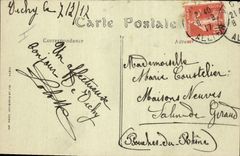 Vichy le 7/2/12
Carte Postale
Correspondance
Adresse
Un affectueux
Bonjour de Vichy
Mademoiselle
Marie Coustelier
Maisons Neuves
Salin de Giraud
Bouches du Rhône